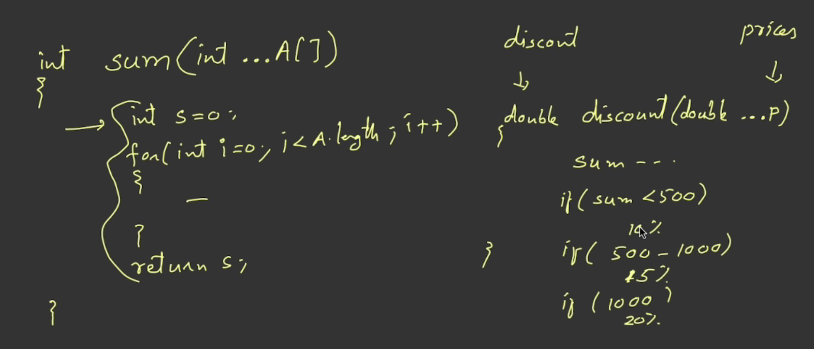 int sum(int ...A[])
{
int s=0;
for(int i=0; i<A.length; i++)
{
—
}
return s;
}
discount prices
double discount(double ...P)
{
sum ---.
if(sum <500)
10%
if( 500-1000)
15%
if (1000)
20%
}